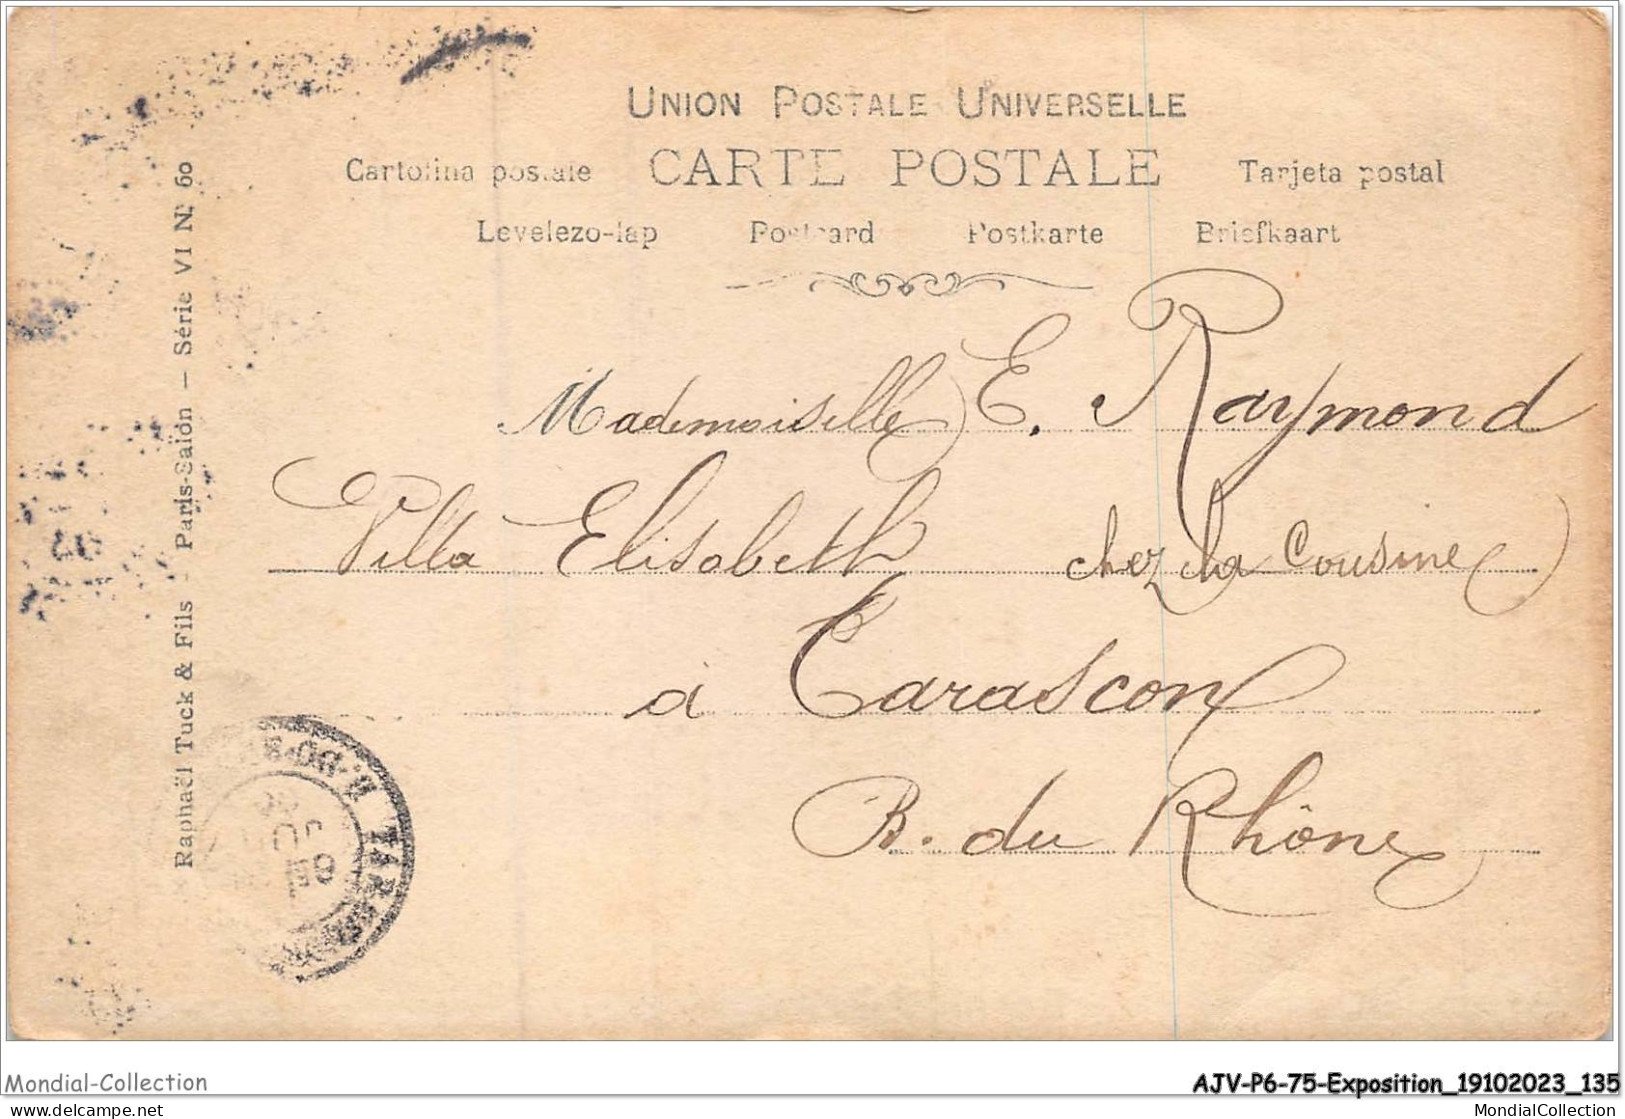 UNION POSTALE UNIVERSELLE
Cartolina postale CARTE POSTALE Tarjeta postal
Levelezo-lap Postcard Postkarte Briefkaart
Raphaël Tuck & Fils - Paris-Salon — Série VI N° 60
Mademoiselle E. Raymond
Villa Elisabeth chez la Cousine
à Tarascon
B. du Rhône
Mondial-Collection
AJV-P6-75-Exposition_19102023_135
https://www.delcampe.net/
MondialCollection